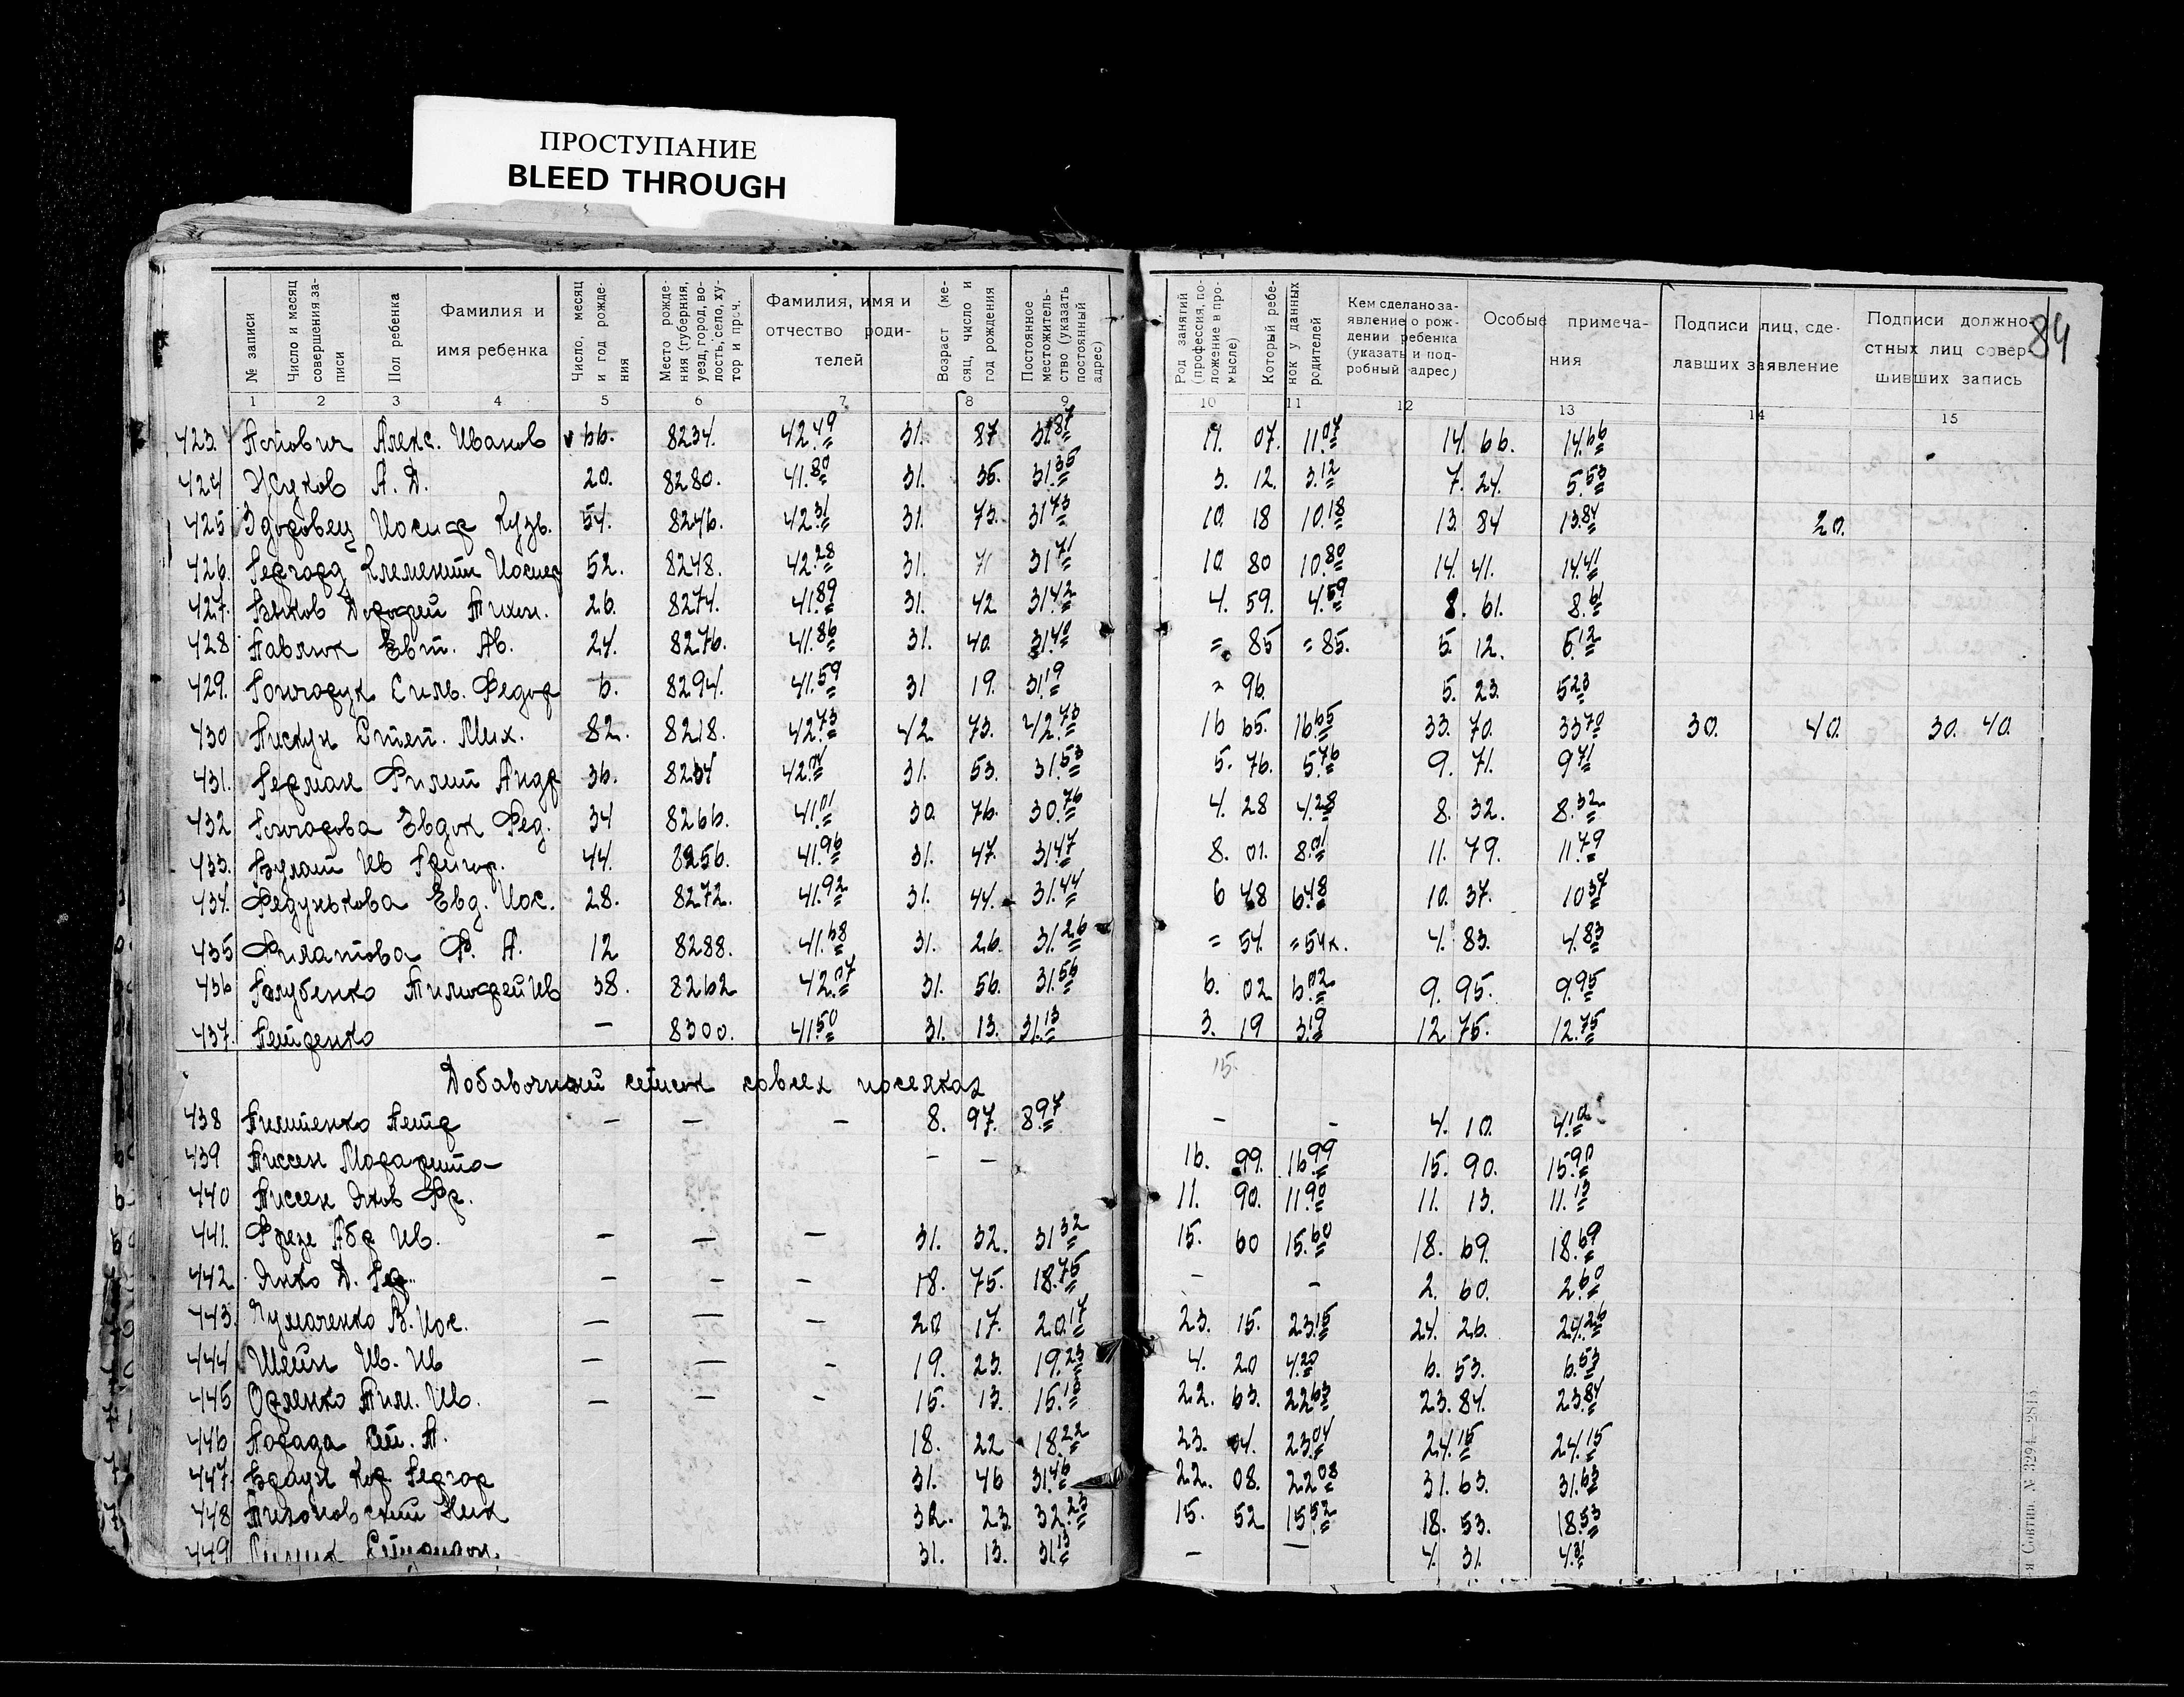 ПРОСТУПАНИЕ
BLEED THROUGH
84
№ записи
Число и месяц совершения записи
Пол ребенка
Фамилия и имя ребенка
Число, месяц и год рождения
Место рождения (губерния, уезд, город, волость, село, хутор и проч.
Фамилия, имя и отчество родителей
Возраст (месяц, число и год рождения
Постоянное местожительство (указать постоянный адрес)
Род занятий (профессия, положение в промысле)
Который ребенок у данных родителей
Кем сделано заявление о рождении ребенка (указать и подробный адрес)
Особые примечания
Подписи лиц, сделавших заявление
Подписи должностных лиц совершивших запись
1 2 3 4 5 6 7 8 9 10 11 12 13 14 15
423. Попович Алекс. Иванов 66. 8234. 42.49 31. 87 31.87 11. 07. 11.07 14. 66. 14.66
424 Жуков А. Д. 20. 8280. 41.80 31. 35. 31.35 3. 12. 3.12 7. 24. 5.53
425 Здоровец Иосиф Кузь. 54. 8246. 42.31 31. 73. 31.73 10. 18 10.18 13. 84 13.84 20.
426. Гергард Клементи Иосиф 52. 8248. 42.28 31. 71 31.71 10. 80 10.80 14. 41. 14.41
427. Быков Дорофей Тихон. 26. 8274. 41.89 31. 42 31.42 4. 59. 4.59 8. 61. 8.61
428 Павлюк Евт. Ав. 24. 8276. 41.86 31. 40. 31.40 = 85 = 85. 5. 12. 5.12
429. Гончарук Силь. Федор 6. 8294. 41.59 31 19. 31.19 = 96. 5. 23. 5.23
430 Пискун Степ. Мих. 82. 8218. 42.73 42 73. 42.73 16 65. 16.65 33. 70. 33.70 30. 40. 30. 40.
431. Герман Филип Андр 36. 8264 42.04 31. 53. 31.53 5. 76. 5.76 9. 71. 9.71
432 Гончарова Евдок Фед. 34 8266. 41.01 30. 76. 30.76 4. 28 4.28 8. 32. 8.32
433. Булат Ив Григор. 44. 8256. 41.96 31. 47. 31.47 8. 01. 8.01 11. 79. 11.79
434. Федунькова Евд. Иос. 28. 8272. 41.92 31. 44. 31.44 6 48 6.48 10. 37. 10.37
435 Филатова Ф. А. 12 8288. 41.68 31. 26. 31.26 = 54. = 54к. 4. 83. 4.83
436 Голубенко Тимофей Ив 38. 8262 42.07 31. 56. 31.56 6. 02 6.02 9. 95. 9.95
437. Петренко — 8300. 41.50 31. 13. 31.13 3. 19 3.19 12. 75. 12.75
15.
Добавочный список совсех поселках
438 Пилипенко Петр — — — 8. 97. 8.97 — - 4. 10. 4.10
439 Тиссен Маргарита — — 16. 99. 16.99 15. 90. 15.90
440 Тиссен Яков Фр. 11. 90. 11.90 11. 13. 11.13
441. Фрезе Абр Ив. — — — 31. 32. 31.32 15. 60 15.60 18. 69. 18.69
442 Янко Д. — - — 18. 75. 18.75 — - 2. 60. 2.60
443. Чумаченко В. Иос. — — — 20 17. 20.17 23. 15. 23.15 24. 26. 24.26
444 Шейн Ив. Ив — — - 19. 23. 19.23 4. 20 4.20 6. 53. 6.53
445 Орленко Тим. Ив. — — — 15. 13. 15.13 22. 63. 22.63 23. 84. 23.84
446 Порада Ст. П. 18. 22 18.22 23. 04. 23.04 24.15 24.15
447. Браун Кор Гергор 31. 46 31.46 22. 08. 22.08 31. 63. 31.63
448 Тихоновский Ник 32. 23 32.23 15. 52 15.52 18. 53. 18.53
449 31. 13. 31.13 — — 4. 31. 4.31